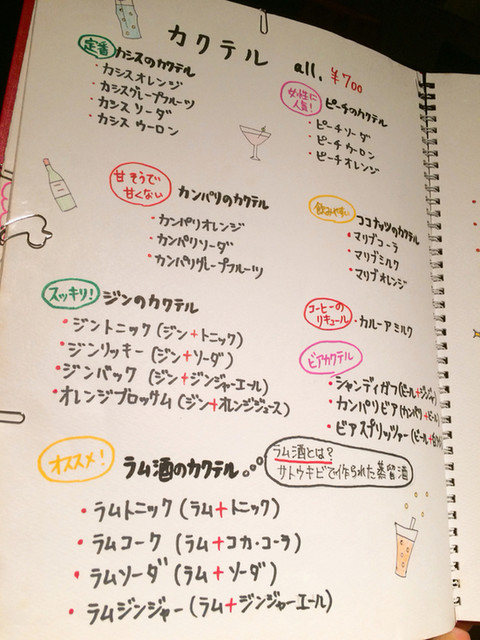 カクテル all, ¥700
定番 カシスのカクテル
・カシスオレンジ
・カシスグレープフルーツ
・カシスソーダ
・カシスウーロン
女性に人気! ピーチのカクテル
・ピーチソーダ
・ピーチウーロン
・ピーチオレンジ
甘そうで甘くない カンパリのカクテル
・カンパリオレンジ
・カンパリソーダ
・カンパリグレープフルーツ
飲みやすい ココナッツのカクテル
・マリブコーラ
・マリブミルク
・マリブオレンジ
スッキリ! ジンのカクテル
・ジントニック(ジン+トニック)
・ジンリッキー(ジン+ソーダ)
・ジンバック(ジン+ジンジャーエール)
・オレンジブロッサム(ジン+オレンジジュース)
コーヒーのリキュール ・カルーアミルク
ビアカクテル
・シャンディガフ(ビール+ジンジャ
・カンパリビア(カンパリ+ビール)
・ビアスプリッツァー(ビール+
オススメ! ラム酒のカクテル
ラム酒とは?
サトウキビで作られた蒸留酒
・ラムトニック(ラム+トニック)
・ラムコーク(ラム+コカ・コーラ)
・ラムソーダ(ラム+ソーダ)
・ラムジンジャー(ラム+ジンジャーエール)